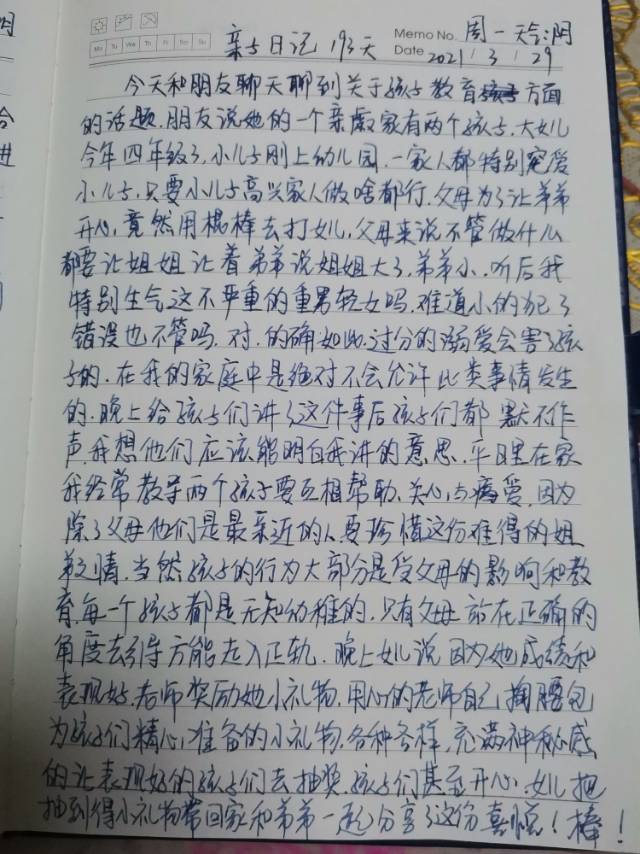 Memo No. 周一 天气:阴
Mo Tu We Th Fr Sa Su
亲子日记 193天 Date 2021/3/29
今天和朋友聊天聊到关于孩子教育方面
的话题.朋友说她的一个亲戚家有两个孩子,大女儿
今年四年级了,小儿子刚上幼儿园,一家人都特别宠爱
小儿子,只要小儿子高兴家人做啥都行.父母为了让弟弟
开心,竟然用棍棒去打女儿,父母来说不管做什么
都要让姐姐让着弟弟说姐姐大了,弟弟小.听后我
特别生气这不严重的重男轻女吗,难道小的犯了
错误也不管吗.对.的确如此.过分的溺爱会害了孩
子的.在我的家庭中是绝对不会允许此类事情发生
的.晚上给孩子们讲了这件事后孩子们都默不作
声.我想他们应该能明白我讲的意思.平日里在家
我经常教导两个孩子要互相帮助.关心与疼爱.因为
除了父母他们是最亲近的人要珍惜这份难得的姐
弟之情.当然孩子的行为大部分是受父母的影响和教
育.每一个孩子都是无知幼稚的.只有父母站在正确的
角度去引导方能走入正轨.晚上女儿说因为她成绩和
表现好.老师奖励她小礼物.用心的老师自己掏腰包
为孩子们精心准备的小礼物.各种各样,充满神秘感
的让表现好的孩子们去抽奖.孩子们甚至开心.女儿把
抽到得小礼物带回家和弟弟一起分享了这份喜悦!棒!